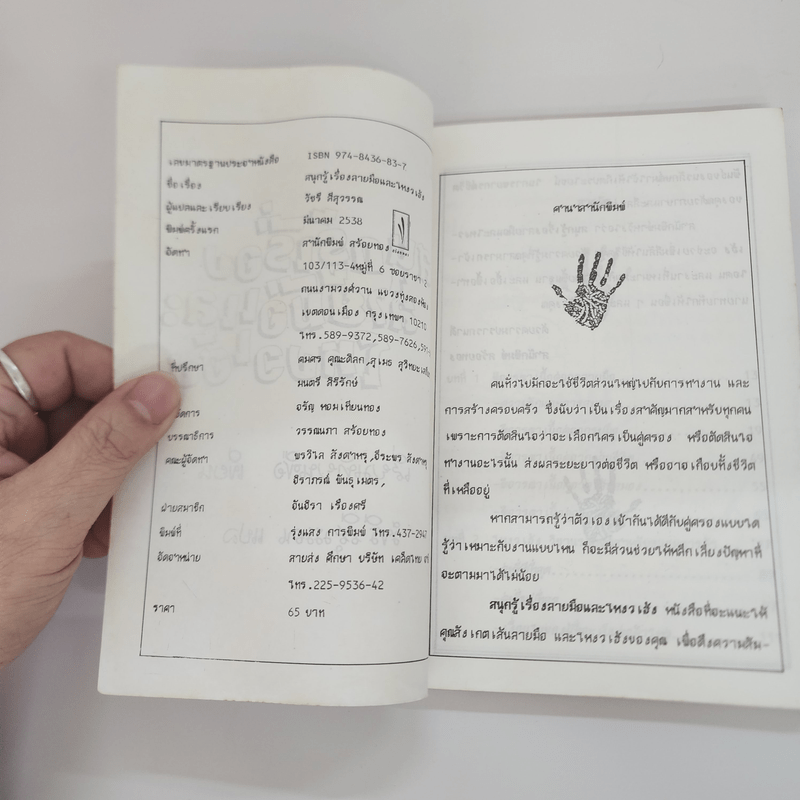 เลขมาตรฐานประจำหนังสือ ISBN 974-8436-83-7
ชื่อเรื่อง สนุกรู้เรื่องลายมือและโหงวเฮ้ง
ผู้แปลและเรียบเรียง วัชรี สีสุวรรณ
พิมพ์ครั้งแรก มีนาคม 2538
จัดทำ สำนักพิมพ์ สร้อยทอง
103/113-4หมู่ที่ 6 ซอยราชา 2
ถนนงามวงศ์วาน แขวงทุ่งสองห้อง
เขตดอนเมือง กรุงเทพฯ 10210
โทร.589-9372,589-7626,591-
ที่ปรึกษา คมศร คุณะดิลก,สุเมธ
มนตรี สิริรักษ์
จัดการ อรัญ หอมเทียนทอง
บรรณาธิการ วรรณนภา สร้อยทอง
คณะผู้จัดทำ พรวิไล สังดาหรุ,ธีระพร สังดาหรุ
จิราภรณ์ พันธุเมตร,
ฝ่ายสมาชิก จันจิรา เรืองศรี
พิมพ์ที่ รุ่งแสง การพิมพ์ โทร.437-2947
จัดจำหน่าย สายส่ง ศึกษา บริษัท เคล็ดไทย
โทร.225-9536-42
ราคา 65 บาท
คำนำสำนักพิมพ์
คนทั่วไปมักจะใช้ชีวิตส่วนใหญ่ไปกับการทำงาน และ
การสร้างครอบครัว ซึ่งนับว่าเป็นเรื่องสำคัญมากสำหรับทุกคน
เพราะการตัดสินใจว่าจะเลือกใครเป็นคู่ครอง หรือตัดสินใจ
ทำงานอะไรนั้น ส่งผลระยะยาวต่อชีวิต หรืออาจเกือบทั้งชีวิต
ที่เหลืออยู่
หากสามารถรู้ว่าตัวเองเข้ากันได้ดีกับคู่ครองแบบใด
รู้ว่าเหมาะกับงานแบบไหน ก็จะมีส่วนช่วยให้หลีกเลี่ยงปัญหาที่
จะตามมาได้ไม่น้อย
สนุกรู้เรื่องลายมือและโหงวเฮ้ง หนังสือที่จะแนะให้
คุณสังเกตเส้นลายมือ และโหงวเฮ้งของคุณ เพื่อดึงความสัม-